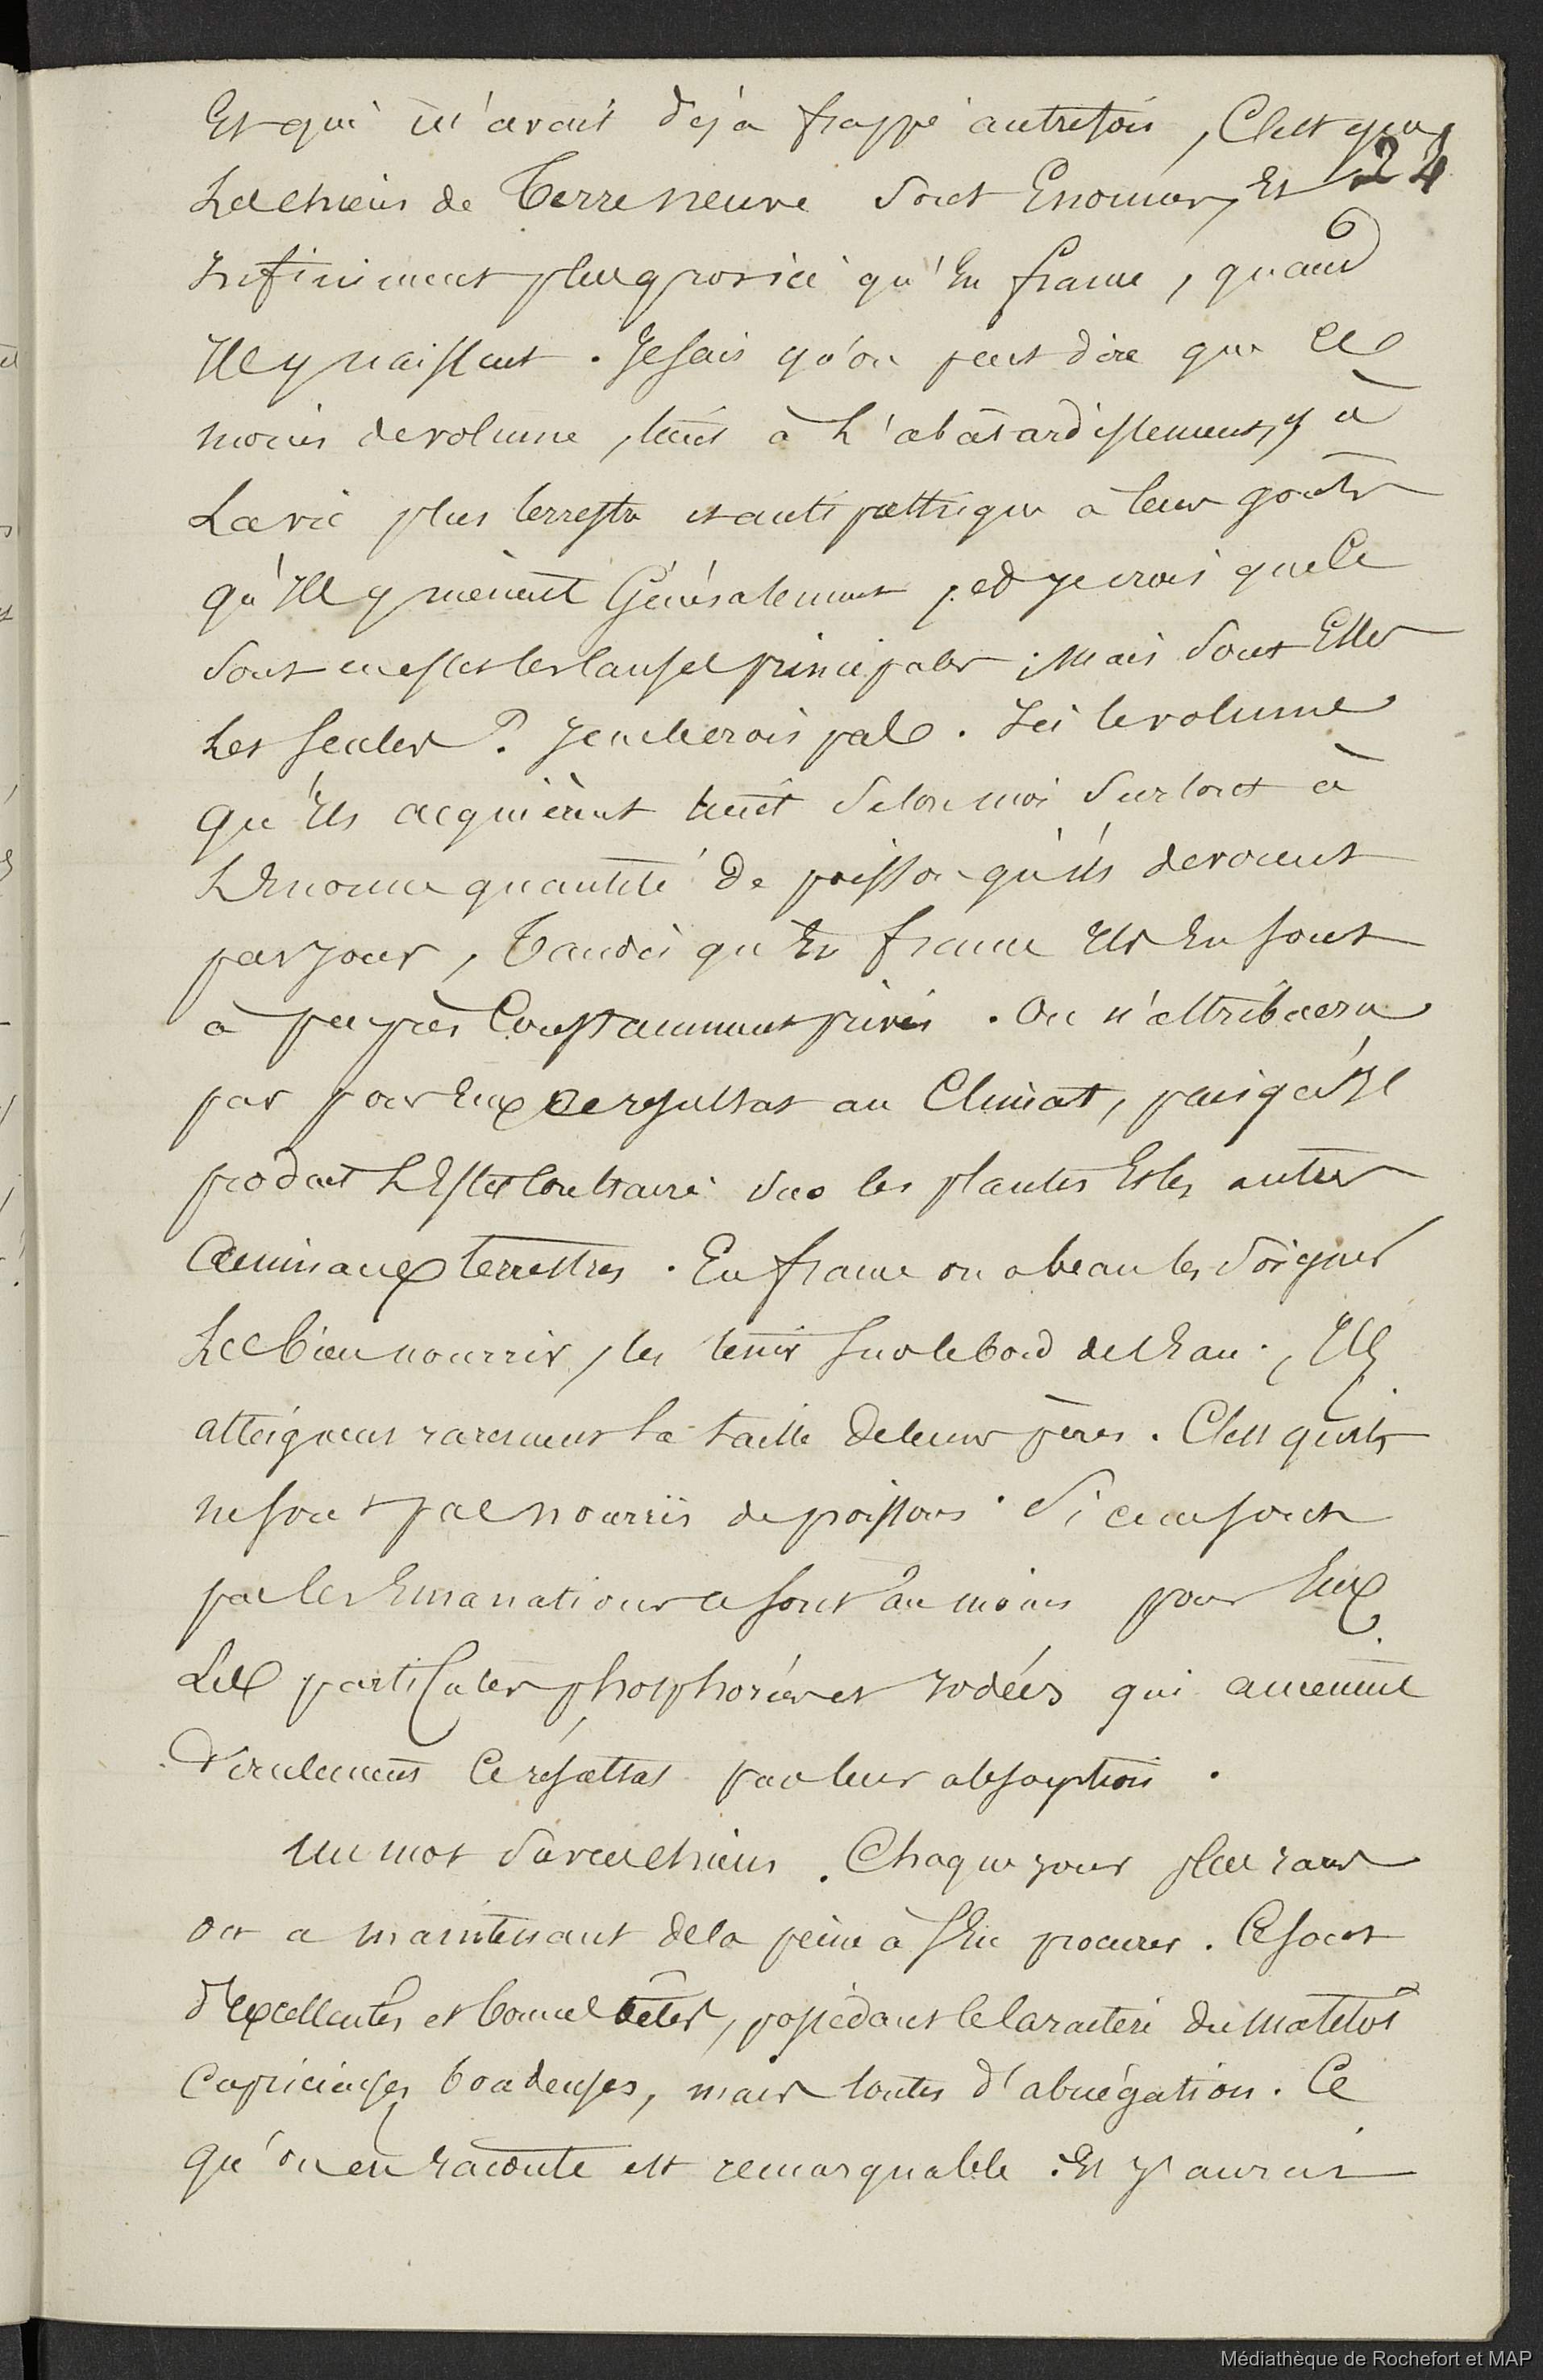 Et qui m'avait déjà frappé autrefois, C'est que
24
Les chiens de Terre neuve sont Enormes, Et
6
Infiniment plus gros ici qu'En france, quand
Ils y naissent. Je sais qu'on peut dire que ce
moins de volume, tient à L'abâtardissement, à
La vie plus terrestre et antipathique à leurs goûts
qu'Ils y mènent Généralement, et je crois que ce
sont en effet les causes principales; Mais sont Elles
Les seules? Je ne le crois pas. Ici le volume
qu'Ils acquièrent tient selon moi surtout à
L'Enorme quantité de poisson qu'ils dévorent
par jour, Tandis qu'En france Ils En sont
à peu près Constamment privés. On n'attribuera
pas pour Eux ce résultat au Climat, puisqu'Il
produit L'Effet Contraire sur les plantes Et les autres
animaux terrestres. En france on a beau les soigner
Les bien nourrir, les tenir sur le bord de l'Eau, Ils
atteignent rarement la taille de leurs pères. C'est qu'ils
ne sont pas nourris de poissons. Si ce ne sont
pas les Emanations ce sont au moins pour Eux
Les particules phosphorées et iodées qui amènent
seulement Ce résultat par leur absorption.
Un mot sur ces chiens. Chaque jour plus rares
on a maintenant de la peine à s'En procurer. Ce sont
d'excellentes et bonnes bêtes, possédant le Caractère du matelot
Capricieuses boudeuses, mais toutes d'abnégation. Ce
qu'on en raconte est remarquable. Et j'aurais
Médiathèque de Rochefort et MAP